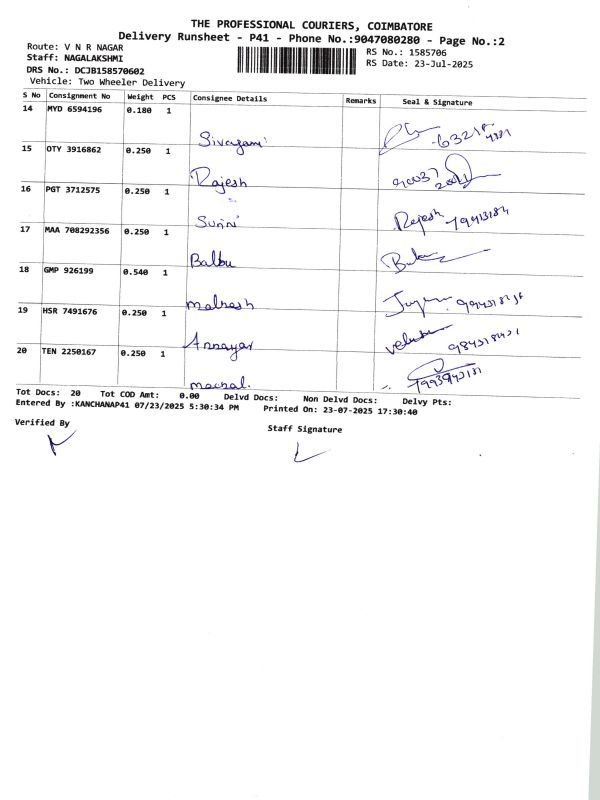 THE PROFESSIONAL COURIERS, COIMBATORE
Delivery Runsheet - P41 - Phone No.:9047080280 - Page No.:2
Route: V N R NAGAR
RS No.: 1585706
Staff: NAGALAKSHMI
RS Date: 23-Jul-2025
DRS No.: DCJB158570602
Vehicle: Two Wheeler Delivery
S No Consignment No Weight PCS Consignee Details Remarks Seal & Signature
14 MYD 6594196 0.180 1 Sivagami
15 OTY 3916862 0.250 1 Rajesh
16 PGT 3712575 0.250 1 Rajesh
17 MAA 708292356 0.250 1 Balbu
18 GMP 926199 0.540 1
19 HSR 7491676 0.250 1
20 TEN 2250167 0.250 1
Tot Docs: 20 Tot COD Amt: 0.00 Delvd Docs: Non Delvd Docs: Delvy Pts:
Entered By :KANCHANAP41 07/23/2025 5:30:34 PM Printed On: 23-07-2025 17:30:40
Verified By
Staff Signature